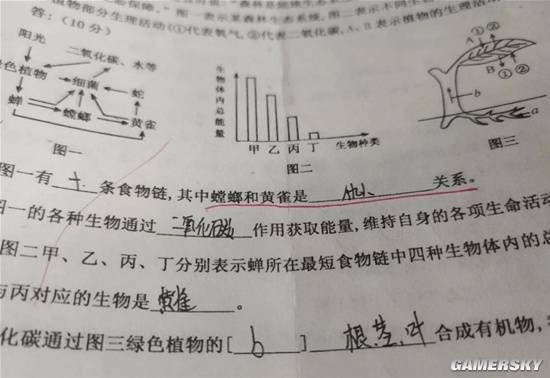 植物部分生理活动(①代表氧气,②代表二氧化碳,A、B表示植物的生理活
答:(10分)
阳光
二氧化碳、水等
绿色植物
细菌
蛇
蝉
螳螂
黄雀
图一
生物体内总能量
甲 乙 丙 丁 生物种类
图二
A ① ②
B ① ②
b
a
图三
图一有 十 条食物链,其中螳螂和黄雀是 关系。
图一的各种生物通过 二氧化碳 作用获取能量,维持自身的各项生命活动
图二甲、乙、丙、丁分别表示蝉所在最短食物链中四种生物体内的总
与丙对应的生物是 黄雀 。
化碳通过图三绿色植物的[ b ] 根、茎、叶 合成有机物,
GAMERSKY